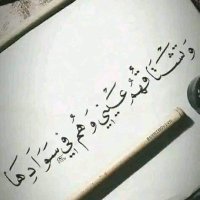 وَتَشْتَاقُهُمْ عَيْنِي وَهُم فِي سَوَادِهَا